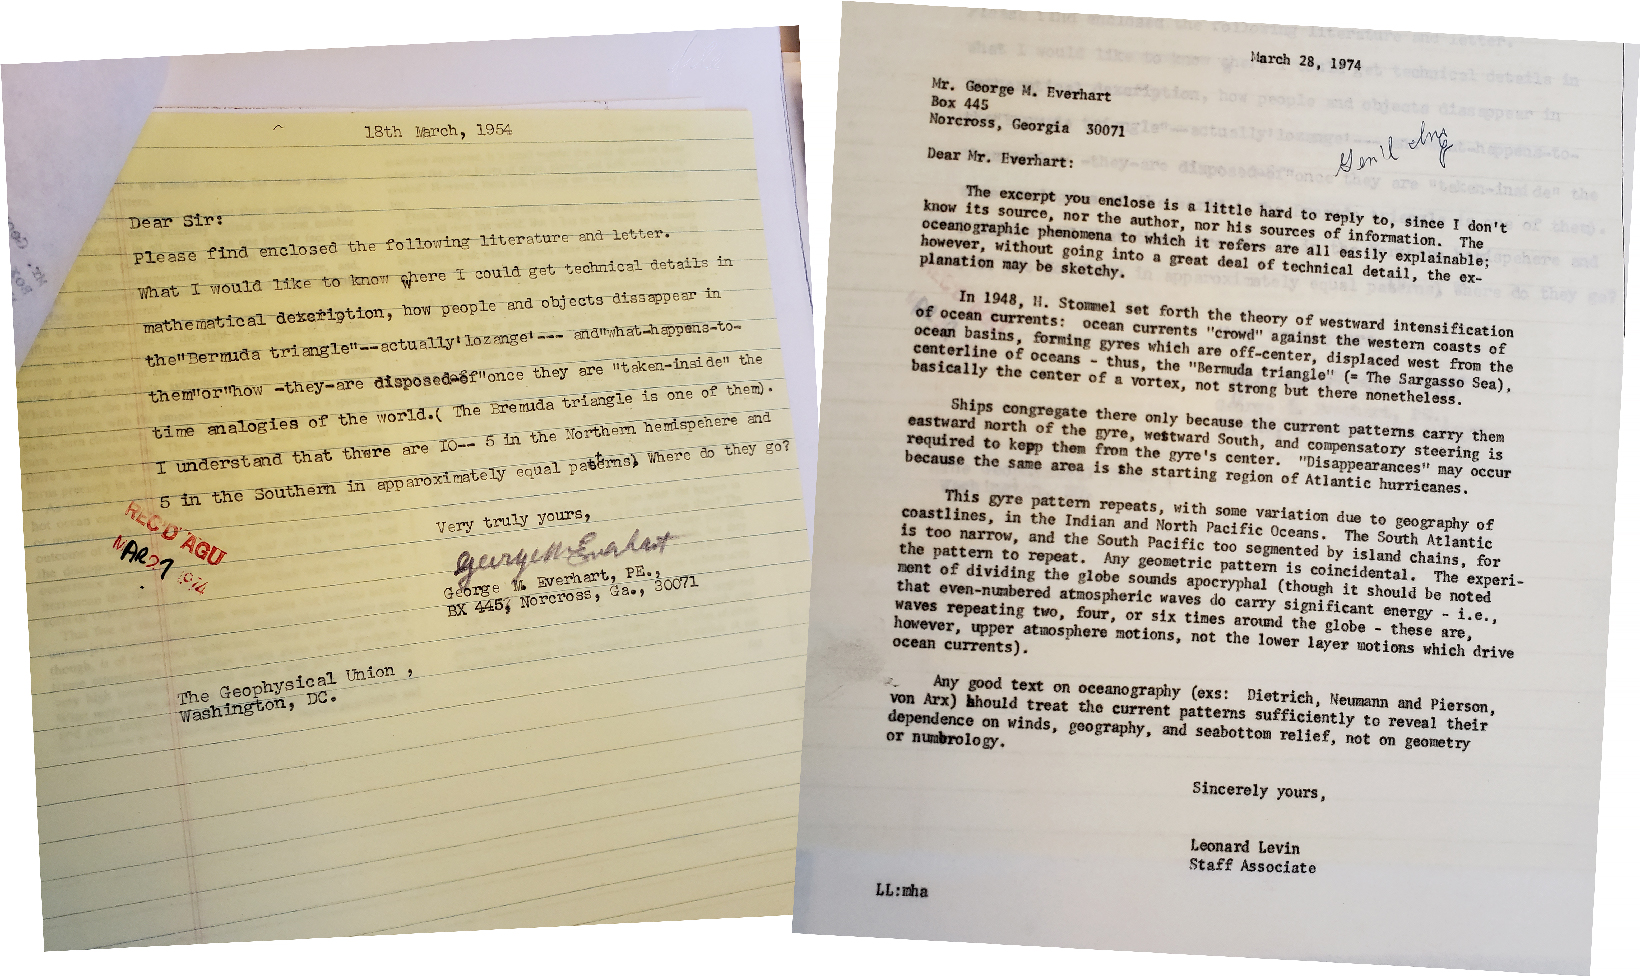 18th March, 1954
Dear Sir:
Please find enclosed the following literature and letter.
What I would like to know where I could get technical details in
mathematical dexcription, how people and objects dissappear in
the"Bermuda triangle"--actually'lozange'--- and"what-happens-to-
them"or"how -they-are disposed-of"once they are "taken-inside" the
time analogies of the world.( The Bremuda triangle is one of them).
I understand that there are IO-- 5 in the Northern hemispehere and
5 in the Southern in approximately equal patterns) Where do they go?
Very truly yours,
George M. Everhart
George M. Everhart, PE.,
BX 445, Norcross, Ga., 30071
REC'D AGU
MAR 27 1974
The Geophysical Union ,
Washington, DC.
March 28, 1974
Mr. George M. Everhart
Box 445
Norcross, Georgia 30071
Gen'l Inq
Dear Mr. Everhart:
The excerpt you enclose is a little hard to reply to, since I don't
know its source, nor the author, nor his sources of information. The
oceanographic phenomena to which it refers are all easily explainable;
however, without going into a great deal of technical detail, the ex-
planation may be sketchy.
In 1948, H. Stommel set forth the theory of westward intensification
of ocean currents: ocean currents "crowd" against the western coasts of
ocean basins, forming gyres which are off-center, displaced west from the
centerline of oceans - thus, the "Bermuda triangle" (= The Sargasso Sea),
basically the center of a vortex, not strong but there nonetheless.
Ships congregate there only because the current patterns carry them
eastward north of the gyre, westward South, and compensatory steering is
required to kepp them from the gyre's center. "Disappearances" may occur
because the same area is the starting region of Atlantic hurricanes.
This gyre pattern repeats, with some variation due to geography of
coastlines, in the Indian and North Pacific Oceans. The South Atlantic
is too narrow, and the South Pacific too segmented by island chains, for
the pattern to repeat. Any geometric pattern is coincidental. The experi-
ment of dividing the globe sounds apocryphal (though it should be noted
that even-numbered atmospheric waves do carry significant energy - i.e.,
waves repeating two, four, or six times around the globe - these are,
however, upper atmosphere motions, not the lower layer motions which drive
ocean currents).
Any good text on oceanography (exs: Dietrich, Neumann and Pierson,
von Arx) should treat the current patterns sufficiently to reveal their
dependence on winds, geography, and seabottom relief, not on geometry
or numbrology.
Sincerely yours,
Leonard Levin
Staff Associate
LL:mha